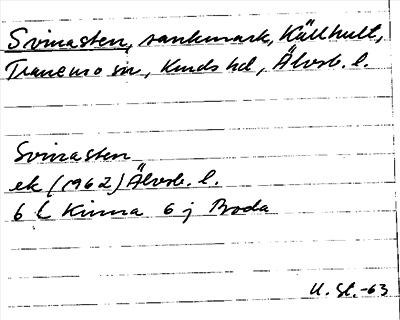 Svinasten, sankmark, Källhult,
Tranemo sn, Kinds hd, Älvsb. l.
Svinasten
ek (1962) Älvsb. l.
6 C Kinna 6 j Broda
U. St. -63